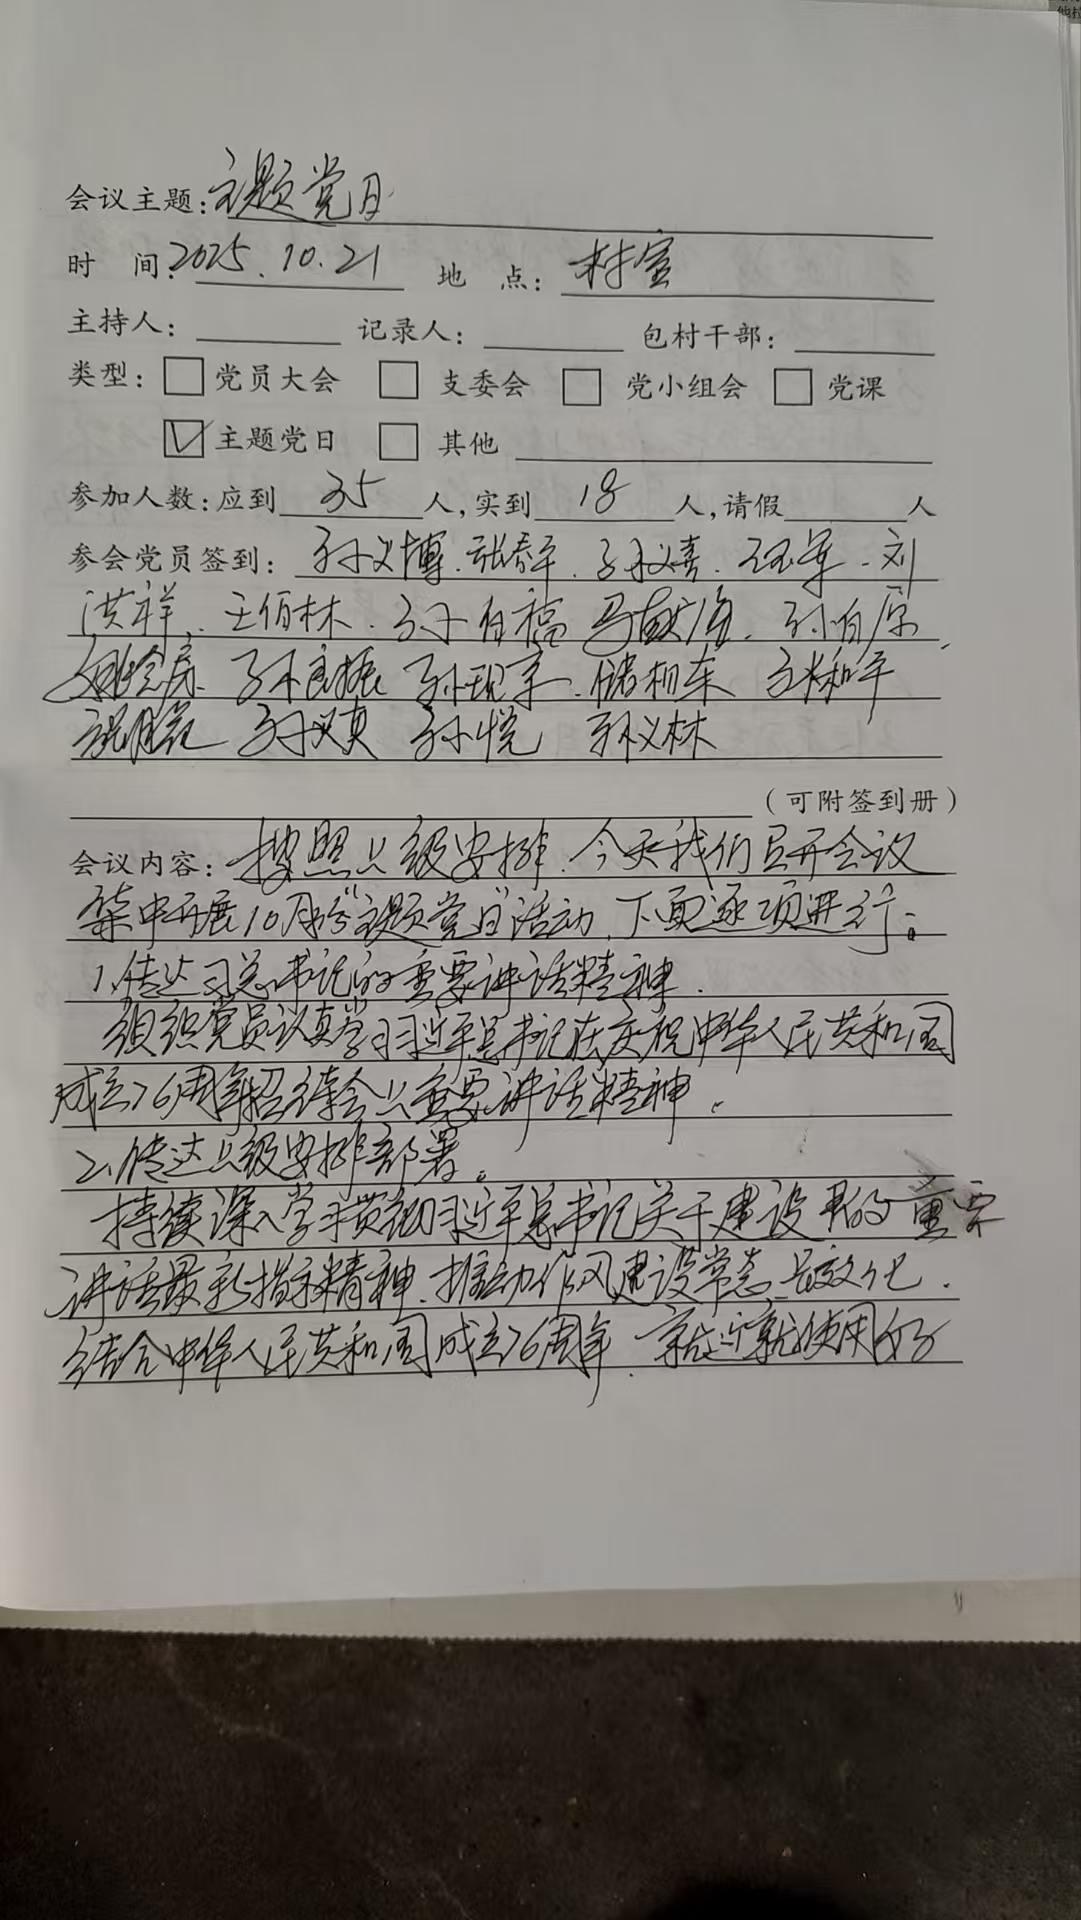 会议主题：主题党日
时 间：2025.10.21 地 点：村室
主持人： 记录人： 包村干部：
类型： 党员大会 支委会 党小组会 党课
主题党日 其他
参加人数：应到 35 人，实到 18 人，请假 人
参会党员签到：孙义博、张春平、孙义喜、 军、刘
洪祥、王佰林、孙自福 马献海、孙自原、
孙良振 孙现亭、储相东 和平
孙义真 孙悦 孙义林
（可附签到册）
会议内容：按照上级安排，今天我们召开会议
集中开展10月份"主题党日"活动，下面逐项进行：
1、传达习总书记的重要讲话精神。
组织党员认真学习习近平总书记在庆祝中华人民共和国
成立76周年招待会上重要讲话精神。
2、传达上级安排部署。
持续深入学习贯彻习近平总书记关于建设 的重要
讲话最新指示精神、推动作风建设常态长效化、
结合中华人民共和国成立76周年、就近就便用好